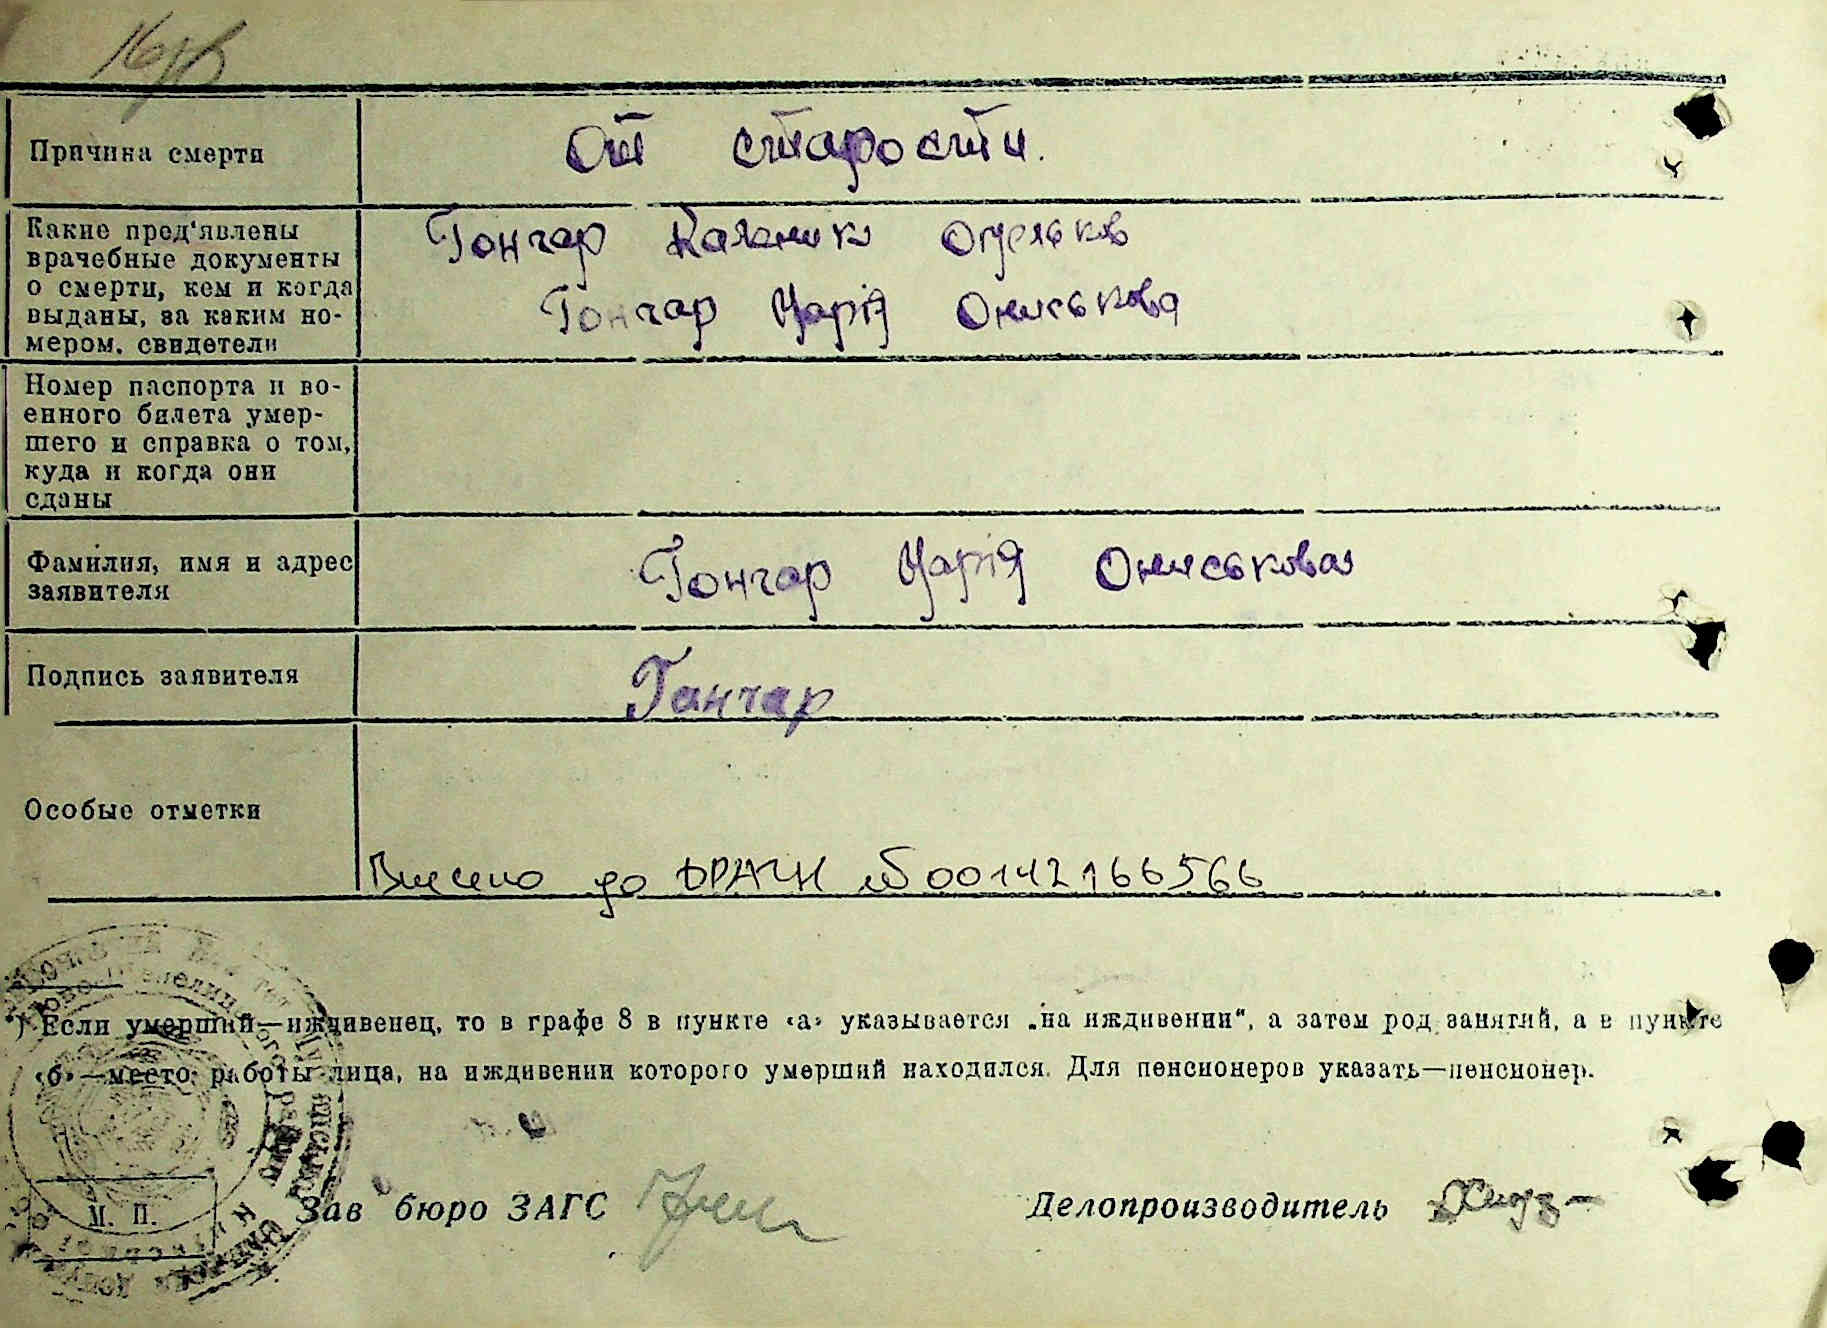 Причина смерти
От старости.
Какие пред'явлены
врачебные документы
о смерти, кем и когда
выданы, за каким но-
мером, свидетели
Гончар
Гончар Марія Ониськова
Номер паспорта и во-
енного билета умер-
шего и справка о том,
куда и когда они
сданы
Фамилия, имя и адрес
заявителя
Гончар Марія Ониськовая
Подпись заявителя
Ганчар
Особые отметки
Внесено до ДРАЦС №00142166566
*) Если умерший—иждивенец, то в графе 8 в пункте «а» указывается „на иждивении“, а затем род занятий, а в пункте
«б»—место работы лица, на иждивении которого умерший находился. Для пенсионеров указать—пенсионер.
М. П.
Зав бюро ЗАГС
Делопроизводитель